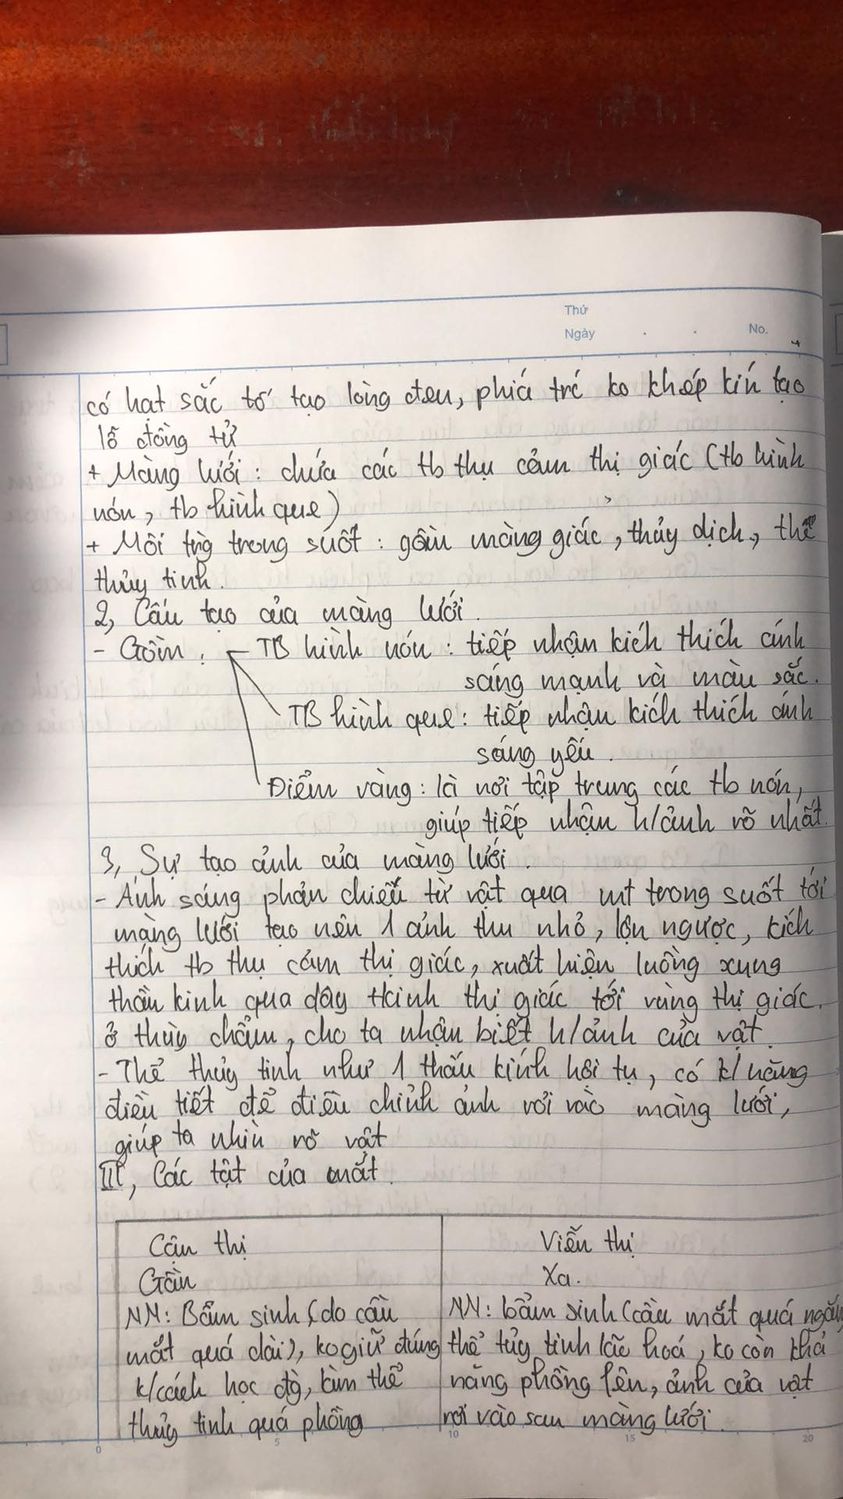 Thứ
Ngày . . No.
có hạt sắc tố tạo lòng đen, phía trc ko khép kín tạo
lỗ đồng tử
+ Màng lưới : chứa các tb thụ cảm thị giác (tb hình
nón, tb hình que)
+ Môi trg trong suốt : gồm màng giác, thủy dịch, thể
thủy tinh.
2, Cấu tạo của màng lưới.
- Gồm : TB hình nón : tiếp nhận kích thích ánh
sáng mạnh và màu sắc.
TB hình que : tiếp nhận kích thích ánh
sáng yếu.
Điểm vàng : là nơi tập trung các tb nón,
giúp tiếp nhận h/ảnh rõ nhất.
3, Sự tạo ảnh của màng lưới.
- Ánh sáng phản chiếu từ vật qua mt trong suốt tới
màng lưới tạo nên 1 ảnh thu nhỏ, lộn ngược, kích
thích tb thụ cảm thị giác, xuất hiện luồng xung
thần kinh qua dây tkinh thị giác tới vùng thị giác
ở thùy chẩm, cho ta nhận biết h/ảnh của vật.
- Thể thủy tinh như 1 thấu kính hội tụ, có k/năng
điều tiết để điều chỉnh ảnh rơi vào màng lưới,
giúp ta nhìn rõ vật
III, Các tật của mắt.
Cận thị
Gần
NN : Bẩm sinh (do cầu
mắt quá dài), ko giữ đúng
k/cách học đg, làm thể
thủy tinh quá phồng
Viễn thị
Xa.
NN : bẩm sinh (cầu mắt quá ngắn
thể tủy tinh lão hoá, ko còn khả
năng phồng lên, ảnh của vật
rơi vào sau màng lưới.
0 5 10 15 20